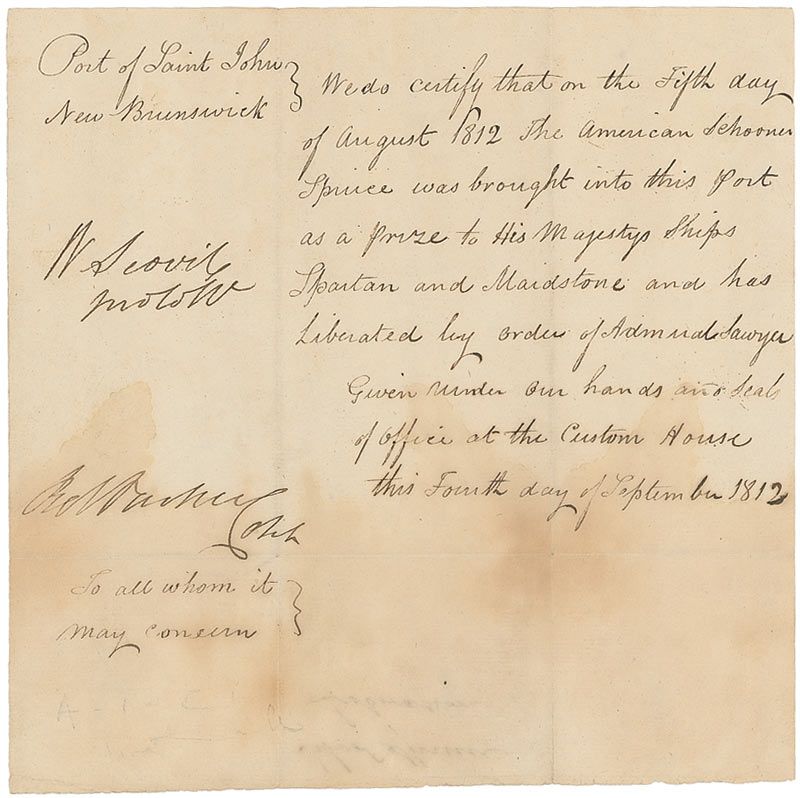 Port of Saint John
New Brunswick
We do certify that on the Fifth day
of August 1812 The American Schooner
Spruce was brought into this Port
as a Prize to His Majestys Ships
Spartan and Maidstone and has
Liberated by order of Admiral Sawyer
Given under our hands and Seals
of Office at the Custom House
this Fourth day of September 1812
W Scovil
To all whom it
may concern